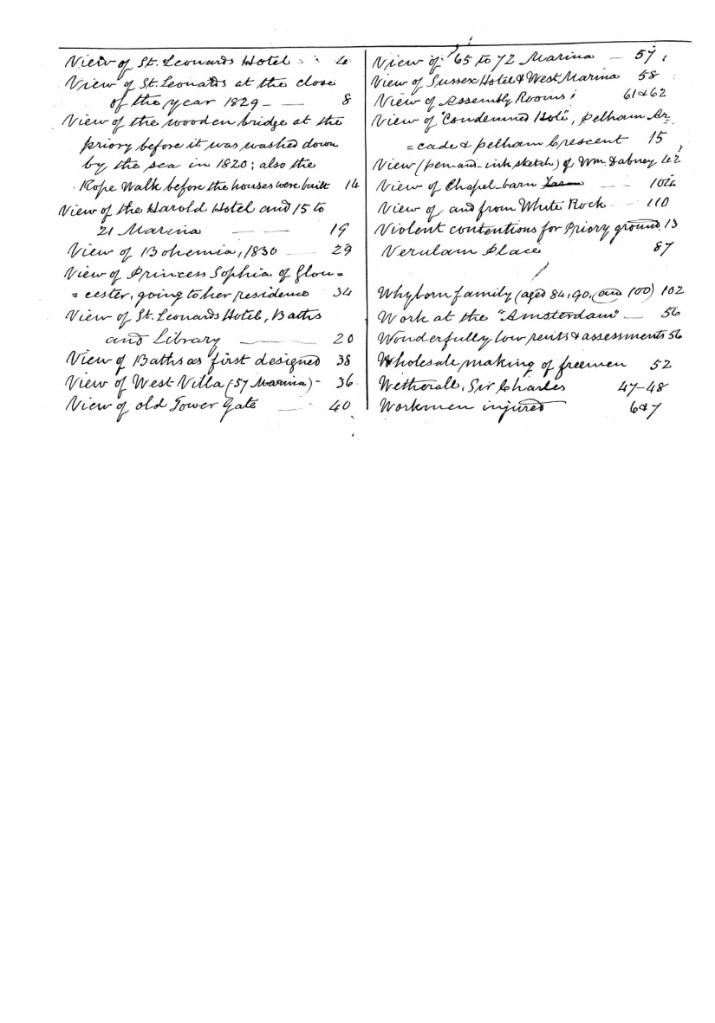 View of St. Leonards Hotel
View of St. Leonards at the close
of the year 1829 — — 8
View of the wooden bridge at the
priory before it was washed down
by the sea in 1820; also the
Rope Walk before the houses were built 14
View of the Harold Hotel and 15 to
21 Marina — — 19
View of Bohemia, 1830 — 29
View of Princess Sophia of Glou=
=cester, going to her residence 34
View of St. Leonards Hotel, Baths
and Library — 20
View of Baths as first designed 38
View of West Villa (57 Marina) - 36
View of old Tower Gate — 40
View of 65 to 72 Marina — 57
View of Sussex Hotel & West Marina 58
View of Assembly Rooms 61&62
View of "Condemned Hole", Pelham Ar=
=cade & pelham Crescent 15
View (pen-and-ink sketch) of Wm. Dabney 42
View of Chapel-barn
View of and from White Rock — 110
Violent contentions for Priory ground 13
Verulam Place 87
Whyborn family (aged 84, 90, and 100) 102
Work at the "Amsterdam" — 56
Wonderfully low rents & assessments 56
Wholesale making of freemen 52
Wetherall, Sir Charles 47-48
Workmen injured 6&7